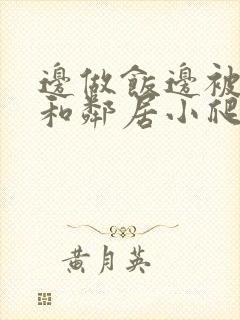 邊做飯邊被
和鄰居小爬
黃月英